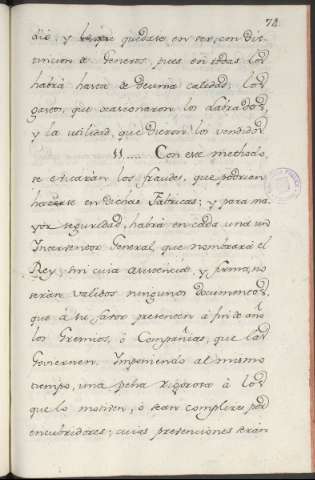 74
dio, y lo que quedase en ser, con Dis-
tincion de Generos, pues en todas los
habrá hasta de Decima calidad; los
gastos, que ocasionaron los Labrados,
y la utilidad, que dieron los vendidos
11..... Con este methodo,
se evitarán los fraudes, que podrien
hacerse en dichas Fabricas; y para ma-
yor seguridad, habrá en cada una un
Interventor General, que nombrará el
Rey; sin cuia asistencia, y firma, no
serán validos ningunos documentos,
que á su favor presenten á fin de año
los Gremios, ó Compañias, que las
Governen. Imponiendo al mismo
tiempo, una pena rigorosa á los
que lo motiven, ó sean complices por
encubridores; cuias pretenciones serán